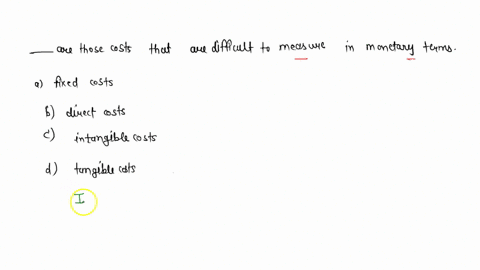 ____ are those costs that are difficult to measure in monetary terms.
a) fixed costs
b) direct costs
c) intangible costs
d) tangible costs
I